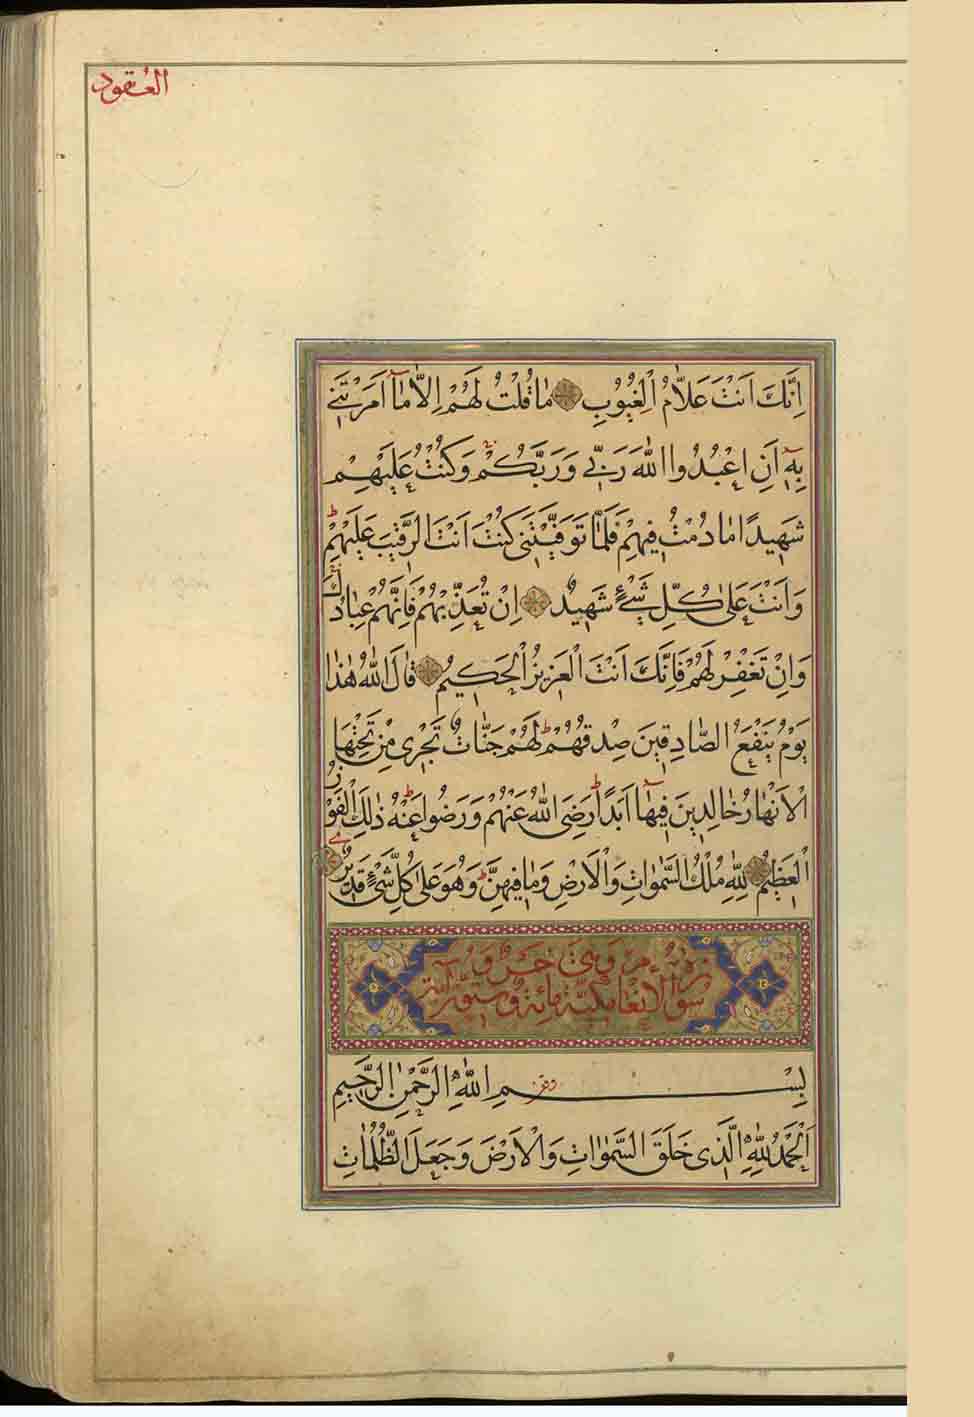 العقود
اِنَّكَ اَنْتَ عَلَّامُ الْغُيُوبِ مٰا قُلْتُ لَهُمْ اِلَّا مٰٓا اَمَرْتَنٖى
بِهٖٓ اَنِ اعْبُدُوا اللّٰهَ رَبّٖى وَرَبَّكُمْ وَكُنْتُ عَلَيْهِمْ
شَهٖيدًا مٰا دُمْتُ فٖيهِمْ فَلَمّٰا تَوَفَّيْتَنٖى كُنْتَ اَنْتَ الرَّقٖيبَ عَلَيْهِمْ
وَاَنْتَ عَلٰى كُلِّ شَىْءٍ شَهٖيدٌ اِنْ تُعَذِّبْهُمْ فَاِنَّهُمْ عِبٰادُكَ
وَاِنْ تَغْفِرْ لَهُمْ فَاِنَّكَ اَنْتَ الْعَزٖيزُ الْحَكٖيمُ قٰالَ اللّٰهُ هٰذٰا
يَوْمُ يَنْفَعُ الصّٰادِقٖينَ صِدْقُهُمْ لَهُمْ جَنّٰاتٌ تَجْرٖى مِنْ تَحْتِهَا
الْاَنْهٰارُ خٰالِدٖينَ فٖيهٰٓا اَبَدًا رَضِىَ اللّٰهُ عَنْهُمْ وَرَضُوا عَنْهُ ذٰلِكَ الْفَوْزُ
الْعَظٖيمُ لِلّٰهِ مُلْكُ السَّمٰوٰاتِ وَالْاَرْضِ وَمٰا فٖيهِنَّ وَهُوَ عَلٰى كُلِّ شَىْءٍ قَدٖيرٌ
سورة الانعام مكية مائة وستون آية
بِسْمِ اللّٰهِ الرَّحْمٰنِ الرَّحٖيمِ
اَلْحَمْدُ لِلّٰهِ الَّذٖى خَلَقَ السَّمٰوٰاتِ وَالْاَرْضَ وَجَعَلَ الظُّلُمٰاتِ